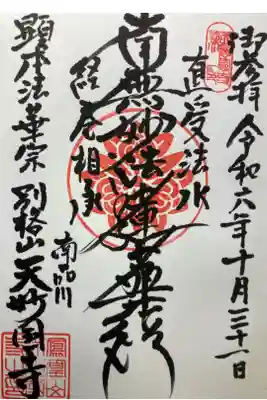 御参拝 令和六年十月三十一日
直受法水
南無妙法蓮華経
経巻相承
南品川
顕本法華宗 別格山 天妙国寺